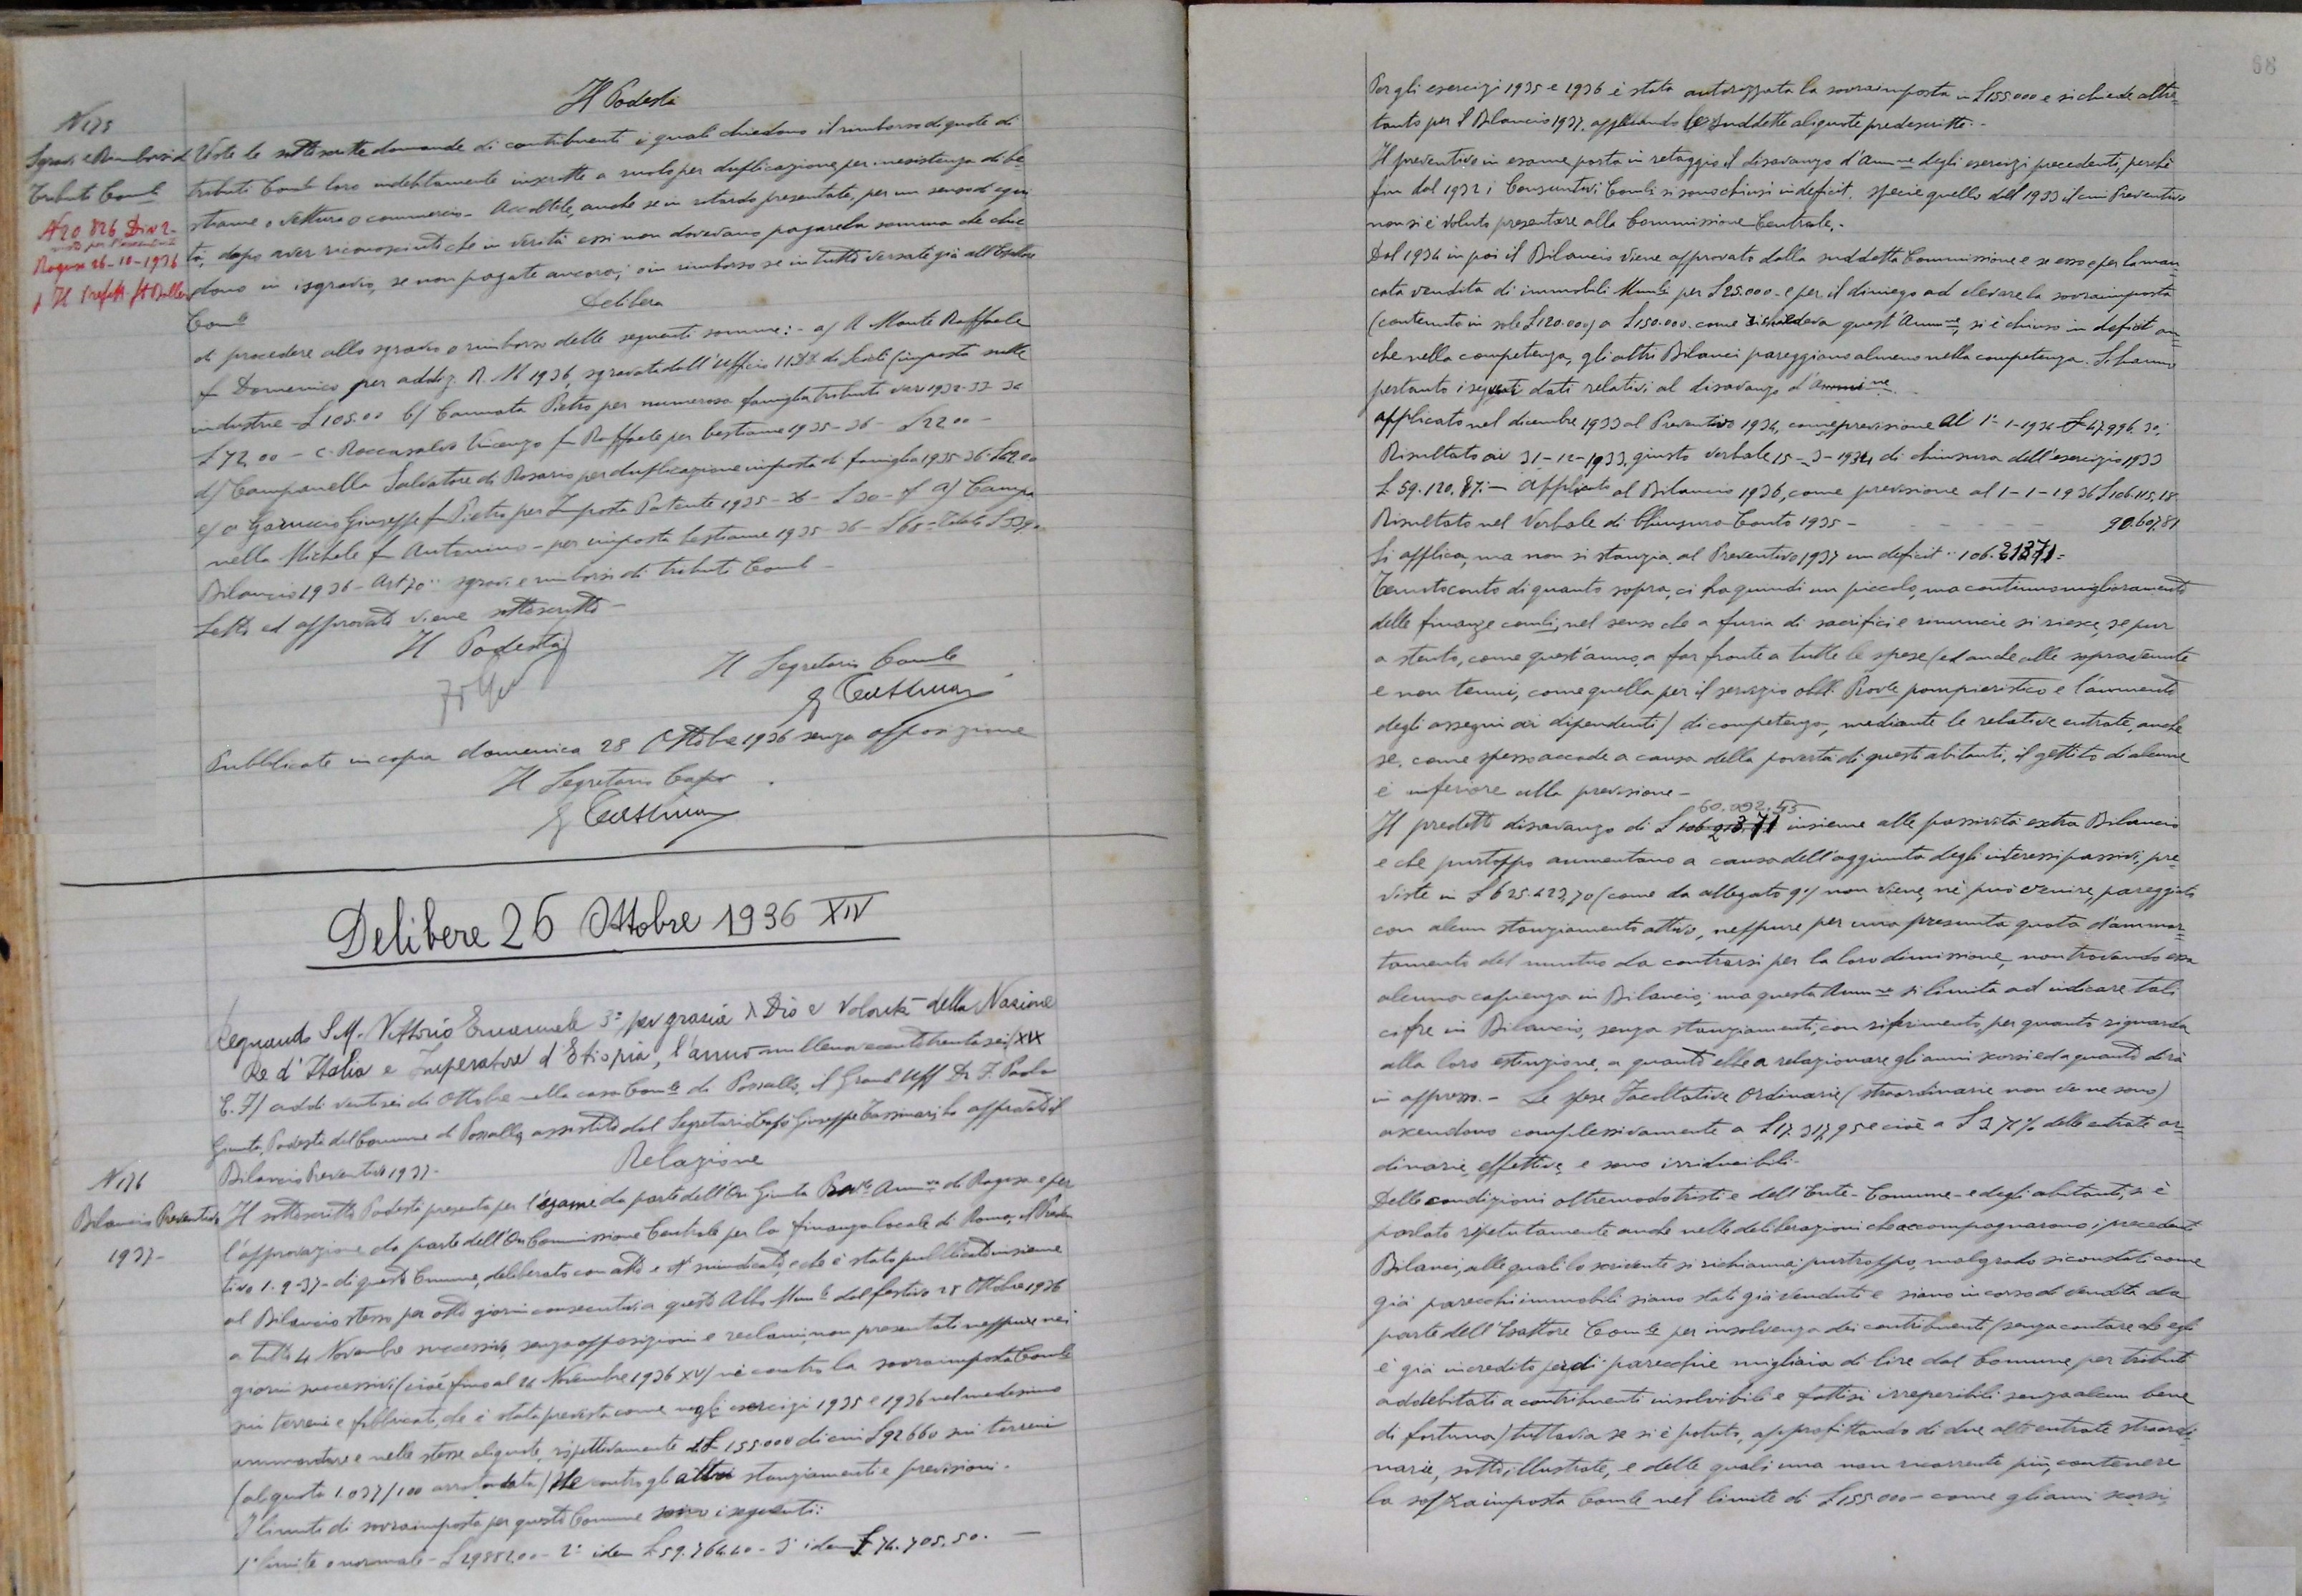 Il Podestà
N 175
Sgravi e Rimborsi di
Tributi Com.li
N 20826 Div 2-
Ragusa 26-10-1936
p Il Prefetto
Viste le sottoscritte domande di contribuenti i quali chiedono il rimborso di quote di
tributi Com.li loro indebitamente inscritte a ruolo per duplicazione, per inesistenza di be-
stiame o vetture o commercio - Accoltele, anche se in ritardo presentate, per un senso di equi
tà, dopo aver riconosciuto che in verità essi non dovevano pagare la somma che chie
dono in isgravio, se non pagate ancora; o in rimborso se in tutto versate già all'Esattore
Com.le
Delibera
di procedere allo sgravio o rimborso delle seguenti somme:- a) A Monte Raffaele
fu Domenico per addiz. R. M 1936, sgravate dall'Ufficio II.DD di Scicli (imposta sulle
industrie - £ 105.00 b) Cannata Pietro per numerosa famiglia tributi vari 1932-33-34
£ 72,00 - c. Roccasalvo Vincenzo fu Raffaele per bestiame 1935-36 - £ 22.00 -
d) Campanella Salvatore di Rosario per duplicazione imposta di famiglia 1935-36-
e) a Giuseppe fu Pietro per Imposta Patente 1935-36 - £ 30 - f a) Campa
nella Michele fu Antonino - per imposta bestiame 1935-36 - £ 68 - Totale
Bilancio 1936 - Art 70 sgravi e rimborsi di tributi Com.li -
Letto ed approvato viene sottoscritto -
Il Podestà
Il Segretario Com.le
Pubblicate in copia domenica 28 Ottobre 1936 senza opposizione
Il Segretario Capo
Delibere 26 Ottobre 1936 XIV
Regnando S.M. Vittorio Emanuele 3° per grazia di Dio e Volontà della Nazione
Re d'Italia e Imperatore d'Etiopia, l'anno millenovecentotrentasei (XIV
E. F) addi ventisei di Ottobre nella casa Com.le di Pozzallo, il Grand Uff Dr F. Paolo
Giunta, Podestà del Comune di Pozzallo, assistito dal Segretario Capo Giuseppe Tassinari, ha approvato il
Bilancio Preventivo 1937-
Relazione
N 176
Bilancio Preventivo
1937-
Il sottoscritto Podestà presenta per l'esame da parte dell'On Giunta Prov.le Amm.va di Ragusa e per
l'approvazione da parte dell'On Commissione Centrale per la finanza locale di Roma, il Preven
tivo 1-9-37- di questo Comune, deliberato con atto e N suindicato, e che è stato pubblicato insieme
al Bilancio stesso per otto giorni consecutivi a questo Albo Mun.le dal festivo 28 Ottobre 1936
a tutto 4 Novembre successivo, senza opposizioni e reclami, non presentati neppure nei
giorni successivi (cioè fino al 24 Novembre 1936 XV) nè contro la sovraimposta Com.le
sui terreni e fabbricati, che è stata prevista come negli esercizi 1935 e 1936 nel medesimo
ammontare e nelle stesse aliquote, rispettivamente di £ 155.000 di cui £ 92660 sui terreni
(aliquota 1.037/100 arrotondata) Nè contro gli altri stanziamenti e previsioni.
I limiti di sovraimposta per questo Comune sono i seguenti:
1° limite o normale - £ 29882.00 - 2° idem £ 59.764.40 - 3° idem £ 74.705.50. -
68
Per gli esercizi 1935 e 1936 è stata autorizzata la sovraimposta in £ 155000 e si chiede altre-
tanto per il Bilancio 1937, applicando le suddette aliquote predescritte.-
Il preventivo in esame porta in retaggio il disavanzo d'Amm.ne degli esercizi precedenti, perchè
fin dal 1932 i Consuntivi Com.li si sono chiusi in deficit, specie quello del 1933 il cui Preventivo
non si è voluto presentare alla Commissione Centrale.-
Dal 1934 in poi il Bilancio viene approvato dalla suddetta Commissione e se esso e per la man-
cata vendita di immobili Mun.li per £ 25.000 - e per il diniego ad elevare la sovraimposta
(contenuta in sole £ 120.000) a £ 150.000. come richiedeva quest'Amm.ne, si è chiuso in deficit an-
che nella competenza, gli altri Bilanci pareggiano almeno nella competenza. Si hanno
pertanto i seguenti dati relativi al disavanzo d'amm.ne
applicato nel dicembre 1933 al Preventivo 1934, come previsione al 1°-1-1934 £ 47.996.30:
Risultato al 31-12-1933, giusto verbale 15-3-1934 di chiusura dell'esercizio 1933
£ 59.120.87:- Applicato al Bilancio 1936, come previsione al 1-1-1936 £ 106.115,18
Risultato nel Verbale di Chiusura Conto 1935 - 90.607.81
Si applica, ma non si stanzia, al Preventivo 1937 un deficit
Tenuto conto di quanto sopra, ci ha quindi un piccolo, ma continuo miglioramento
delle finanze com.li, nel senso che a furia di sacrifici e rinuncie si riesce, se pur
a stento, come quest'anno, a far fronte a tutte le spese (ed anche alle sopravvenute
e non tenui, come quella per il servizio obbl. Prov.le pompieristico e l'aumento
degli assegni ai dipendenti) di competenza, mediante le relative entrate, anche
se, come spesso accade a causa della povertà di questi abitanti, il gettito di alcune
è inferiore alla previsione -
60.092,55
Il predetto disavanzo di £ insieme alle passività extra Bilancio
e che purtroppo aumentano a causa dell'aggiunta degli interessi passivi, pre-
viste in £ 625.423,70 (come da allegato 9°) non viene, nè può venire, pareggiato
con alcun stanziamento attivo, neppure per una presunta quota d'ammor-
tamento del mutuo da contrarsi per la loro dimissione, non trovando essa
alcuna capienza in Bilancio; ma questa Amm.ne si limita ad indicare tali
cifre in Bilancio, senza stanziamenti, con riferimento, per quanto riguarda
alla loro estinzione, a quanto ebbe a relazionare gli anni scorsi ed a quanto dirà
in appresso. - Le spese Facoltative Ordinarie (straordinarie non ve ne sono)
ascendono complessivamente a £ 17.317,95 e cioè a £ 3.71% delle entrate or-
dinarie effettive, e sono irriducibili-
Delle condizioni oltremodo tristi e dell'Ente - Comune - e degli abitanti, si è
parlato ripetutamente anche nelle deliberazioni che accompagnarono i precedenti
Bilanci, alle quali lo scrivente si richiama; purtroppo, malgrado si constati come
già parecchi immobili siano stati già venduti e siano in corso di vendita da
parte dell'Esattore Com.le per insolvenza dei contribuenti (senza contare che egli
è già in credito per di parecchie migliaia di lire dal Comune per tributi
addebitati a contribuenti insolvibili e fattisi irreperibili senza alcun bene
di fortuna) tuttavia se si è potuto, approfittando di due alte entrate straordi-
narie, sotto illustrate, e delle quali una non ricorrente più, contenere
la sovraimposta Com.le nel limite di £ 155000 - come gli anni scorsi,